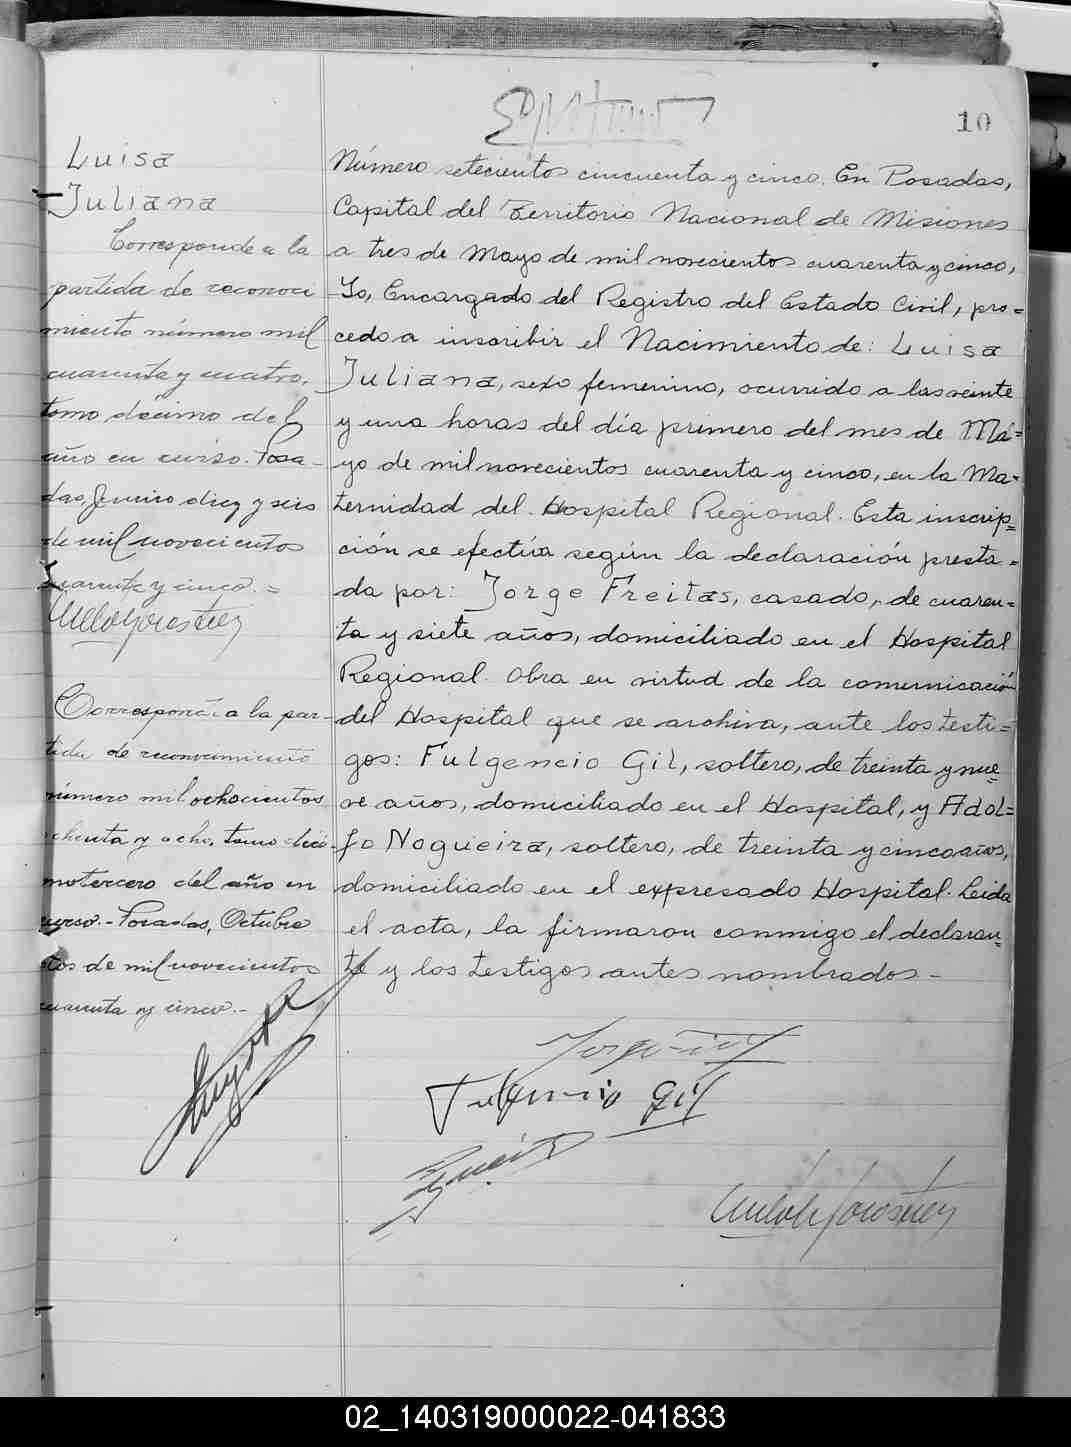 10
Luisa
Juliana
Corresponde a la
partida de reconoci
miento número mil
cuarenta y cuatro,
tomo décimo del
año en curso. Posa-
das, Junio diez y seis
de mil novecientos
cuarenta y cinco.=
Corresponde a la par-
tida de reconocimiento
número mil ochocientos
ochenta y ocho, tomo déci-
motercero del año en
curso.- Posadas, Octubre
de mil novecientos
cuarenta y cinco.-
Número setecientos cincuenta y cinco. En Posadas,
Capital del Territorio Nacional de Misiones
a tres de Mayo de mil novecientos cuarenta y cinco,
Yo, Encargado del Registro del Estado Civil, pro=
cedo a inscribir el Nacimiento de: Luisa
Juliana, sexo femenino, ocurrido a las veinte
y una horas del día primero del mes de Ma=
yo de mil novecientos cuarenta y cinco, en la Ma-
ternidad del Hospital Regional. Esta inscrip=
ción se efectúa según la declaración presta=
da por: Jorge Freitas, casado, de cuaren=
ta y siete años, domiciliado en el Hospital
Regional. Obra en virtud de la comunicación
del Hospital que se archiva, ante los testi=
gos: Fulgencio Gil, soltero, de treinta y nue=
ve años, domiciliado en el Hospital, y Adol=
fo Nogueira, soltero, de treinta y cinco años,
domiciliado en el expresado Hospital. Leida
el acta, la firmaron conmigo el declaran=
te y los testigos antes nombrados-
Fulgencio Gil
02_140319000022-041833